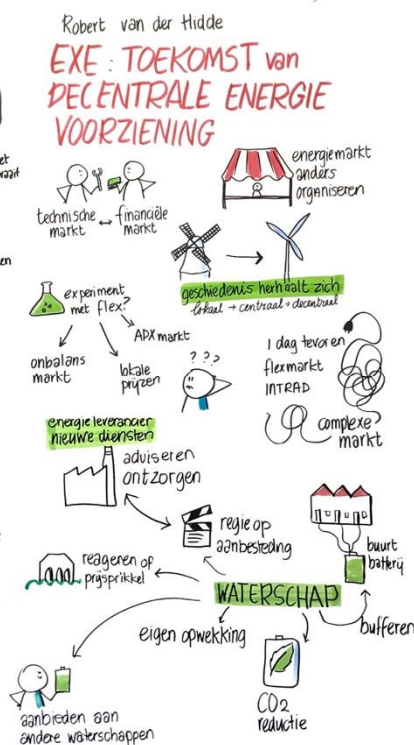 Robert van der Hidde
EXE: TOEKOMST van
DECENTRALE ENERGIE
VOORZIENING
technische
markt
financiële
markt
energiemarkt
anders
organiseren
geschiedenis herhaalt zich
lokaal → centraal → decentraal
experiment
met flex?
onbalans
markt
lokale
prijzen
APX markt
???
1 dag tevoren
flexmarkt
INTRAD
complexe
markt
energie leverancier
nieuwe diensten
adviseren
ontzorgen
regie op
aanbesteding
buurt
batterij
reageren op
prijsprikkel
WATERSCHAP
bufferen
eigen opwekking
CO2
reductie
aanbieden aan
andere waterschappen